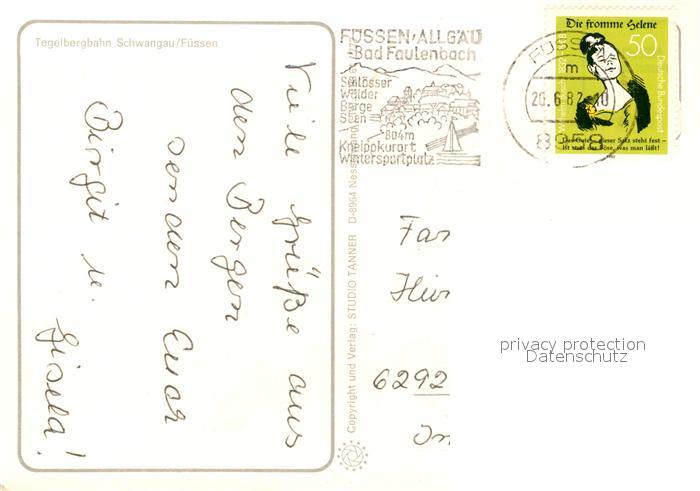 Tegelbergbahn Schwangau/Füssen
Viele Grüße aus
den Bergen
senden Euch
Birgit u.
Gisela!
Copyright und Verlag: STUDIO TANNER D-8964 Ness
FÜSSEN/ALLGÄU
Bad Faulenbach
Schlösser
Wälder
Berge
Seen
804m
Kneippkurort
Wintersportplatz
FÜSS
m
20.6.82-10
Die fromme Helene
50
Deutsche Bundespost
Das Gute – dieser Satz steht fest –
Ist stets das Böse, was man läßt!
Fam
6292
privacy protection
Datenschutz